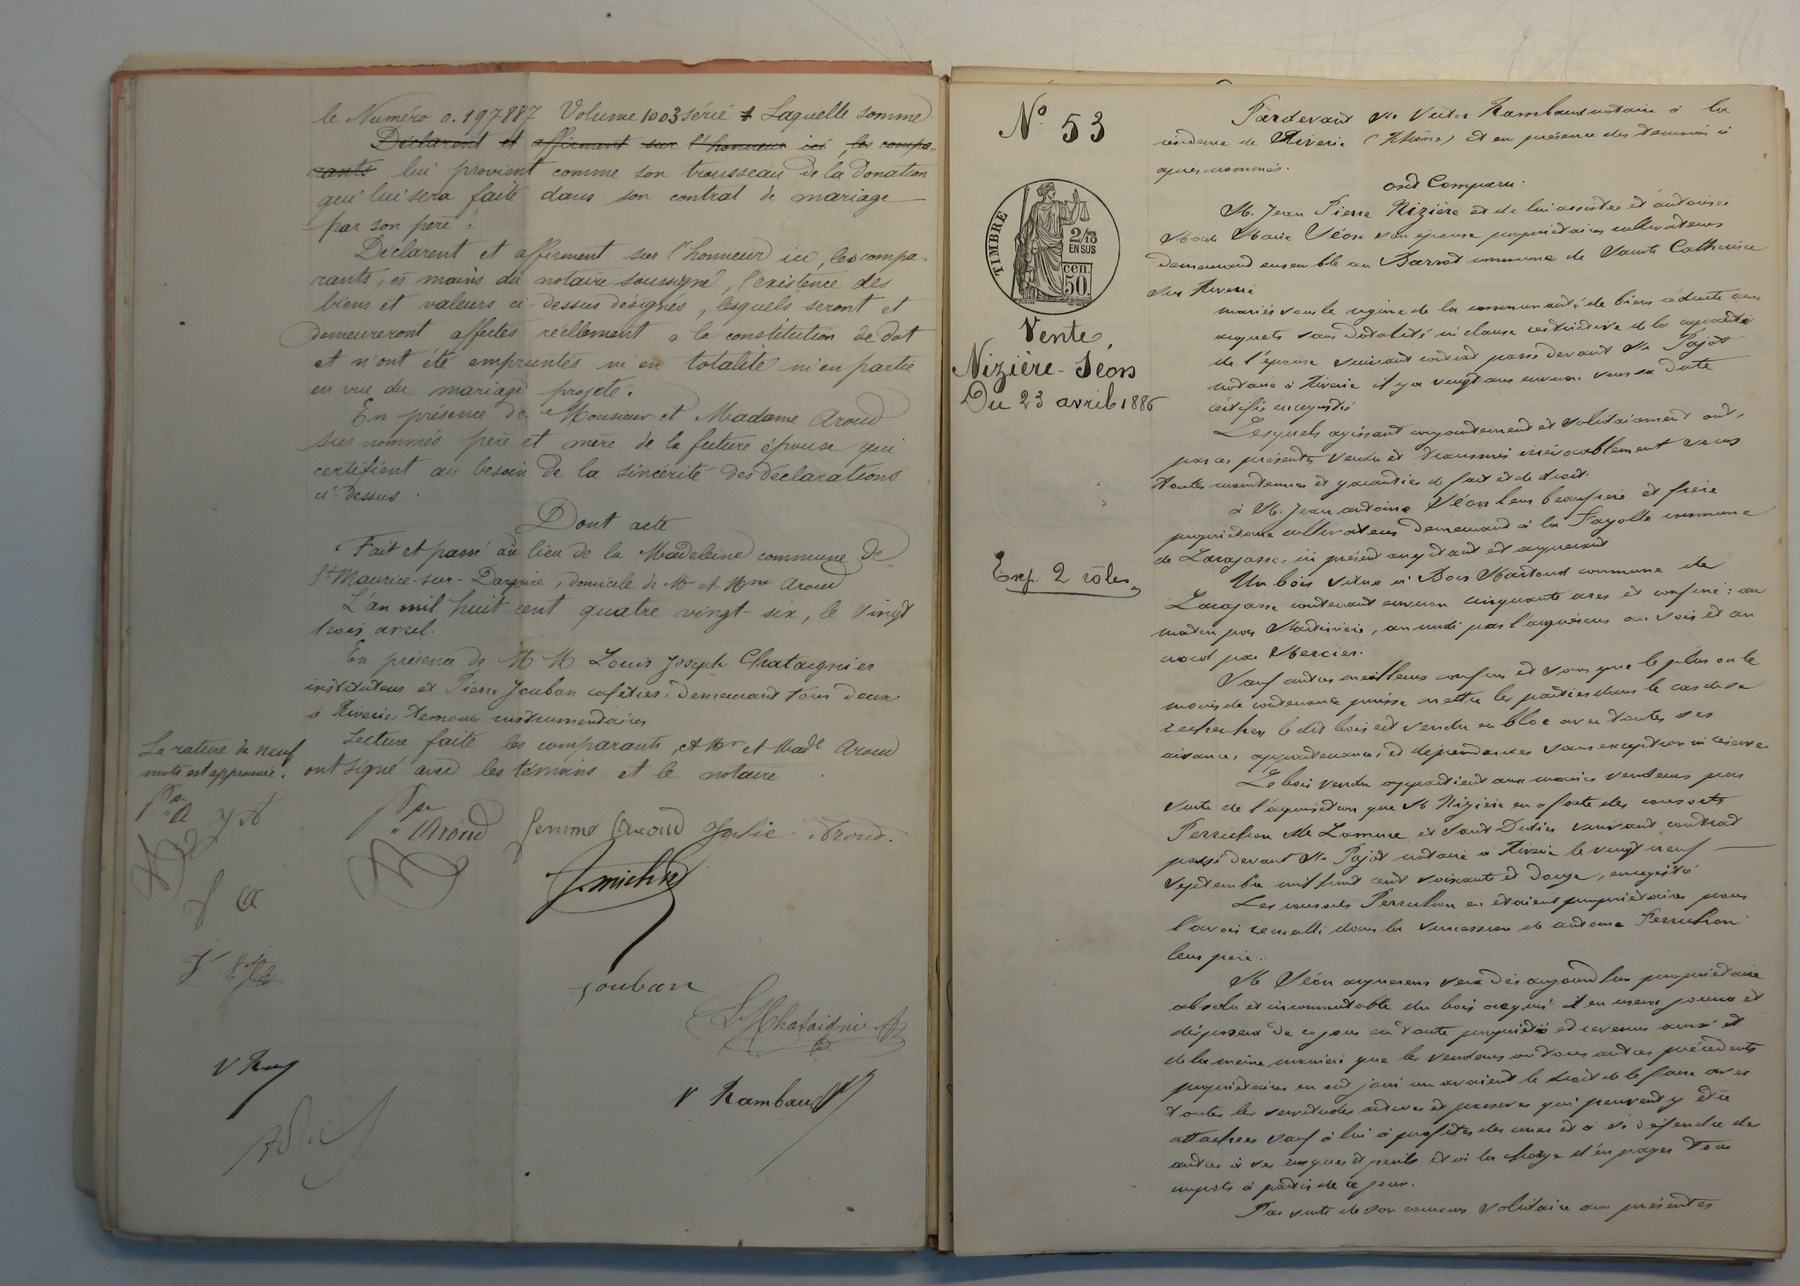 le Numéro 0.197887 Volume 1003 série 1 Laquelle somme
Déclarent et affirment sur l'honneur ici, les compa-
rants lui provient comme son trousseau de la donation
qui lui sera faite dans son contrat de mariage
par son père.
Déclarent et affirment sur l'honneur ici, les compa-
rants, es mains du notaire soussigné, l'existence des
biens et valeurs ci-dessus désignés, lesquels seront et
demeureront affectés réellement a la constitution de dot
et n'ont été empruntés ni en totalité ni en partie
en vue du mariage projeté.
En présence de Monsieur et Madame Aroud
sus nommés père et mère de la future épouse qui
certifient au besoin de la sincérité des déclarations
ci-dessus.
Dont acte
Fait et passé au lieu de la Madeleine commune de
St Maurice-sur-Dargoire, domicile de Mr et Mme Aroud
L'an mil huit cent quatre vingt-six, le vingt
trois avril.
En présence de M M Louis Joseph Chataignier
instituteur et Pierre Jouban cafetier, demeurant tous deux
à Riverie témoins instrumentaires
Lecture faite les comparants, et Mr et Made Aroud
ont signé avec les témoins et le notaire
La rature de neuf
mots est approuvée.
Aroud femme Aroud Aroud
Jouban
L J Chataignier
V Ram
V Rambaud
No 53
TIMBRE
2/10
EN SUS
50 cen.
Vente
Nizière-Séon
Du 23 avril 1886
Exp. 2 rôles
Pardevant Me Victor Rambaud notaire à la
résidence de Riverie (Rhône) et en présence des témoins ci
après nommés.
Ont Comparu:
M. Jean Pierre Nizière et de lui assistée et autorisée
Made Marie Séon son épouse propriétaires cultivateurs
demeurant ensemble au Barrot commune de Sainte Catherine
sur Riverie
mariés sous le régime de la communauté de biens réduite aux
acquets sans dotalité ni clause restrictive de la capacité
de l'épouse suivant contrat passé devant Me Pajot
notaire à Riverie il y a vingt ans environ sous sa date
certifié enregistré
Lesquels agissant conjointement et solidairement ont,
par ces présentes vendu et transmis irrévocablement sous
toutes maintenues et garanties de fait et de droit.
à M. Jean antoine Séon leur beaufrère et frère
propriétaire cultivateur demeurant à la Fayolle commune
de Larajasse, ici présent acceptant et acquérant
Un bois situé à Bois Martoud commune de
Larajasse contenant environ cinquante ares et confiné: au
matin par, au midi par l'acquéreur au soir et au
nord par Mercier.
Sauf autres meilleurs confins et sans que le plus ou le
moins de contenance puisse mettre les parties dans le cas de se
rechercher le dit bois est vendu en bloc avec toutes ses
aisances, appartenances et dépendances sans exception ni réserve
Le bois vendu appartient aux mariés vendeurs par
suite de l'acquisition que M Nizière en a faite des consorts
Perrichon de Lamure et Saint Didier suivant contrat
passé devant Me Pajot notaire à Riverie le vingt neuf
septembre mil huit cent soixante et douze, enregistré
Les consorts Perrichon en étaient propriétaires pour
l'avoir recueilli dans la succession de antoine Perrichon
leur père.
M Séon acquéreur sera dès aujourd'hui propriétaire
absolu et incommutable du bois acquis il en usera jouira et
disposera de ce jour en toute propriété et revenus ainsi et
de la même manière que les vendeurs ou tous autres précédents
propriétaires en ont joui ou avaient le droit de le faire avec
toutes les servitudes actives et passives qui peuvent y être
attachées sauf à lui à profiter des unes et à se défendre des
autres à ses risques et périls et à la charge d'en payer tous
impots à partir de ce jour.
Par suite de son concours solidaire aux présentes